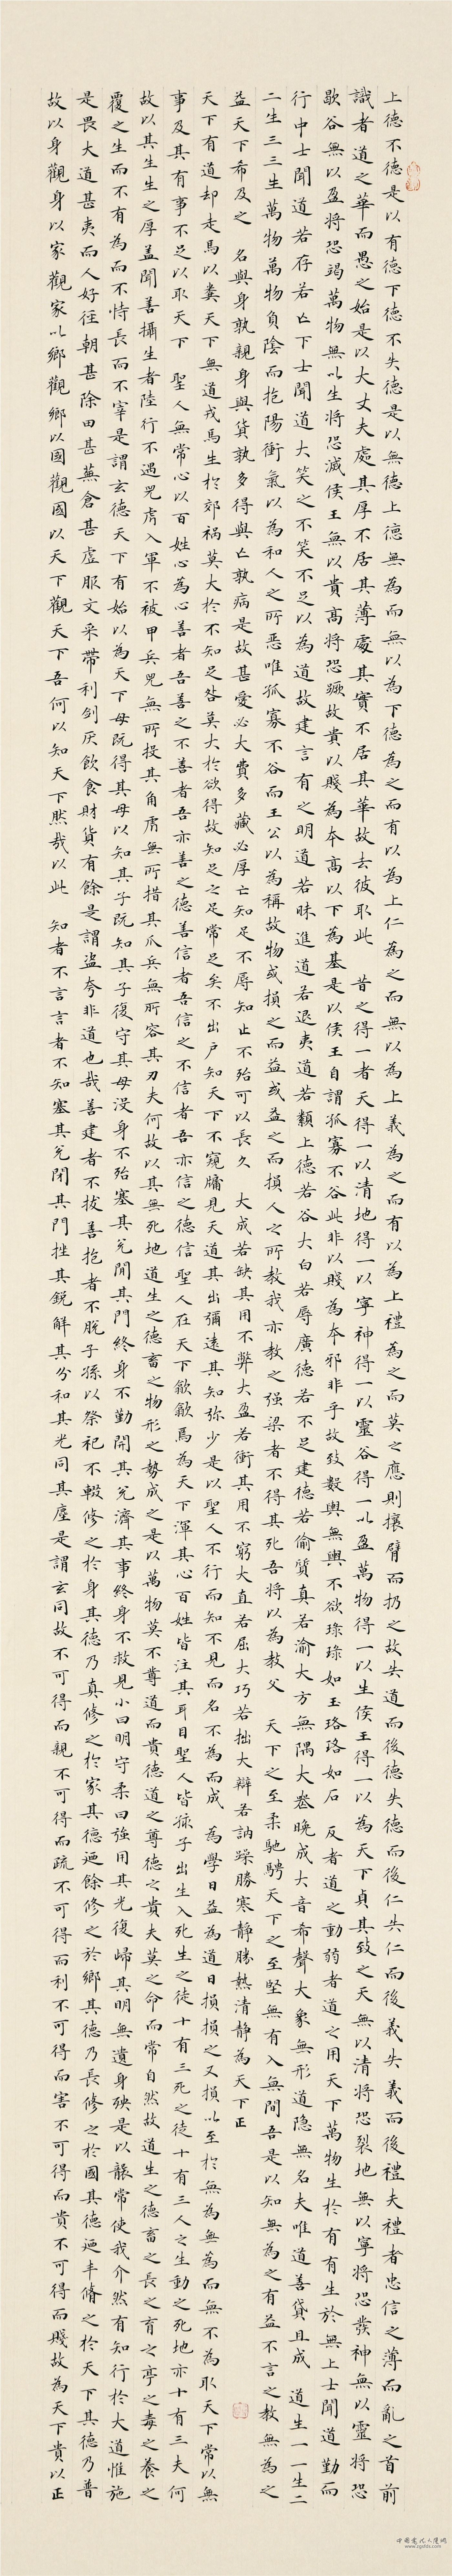 上德不德是以有德下德不失德是以無德上德無為而無以為下德為之而有以為上仁為之而無以為上義為之而有以為上禮為之而莫之應則攘臂而扔之故失道而後德失德而後仁失仁而後義失義而後禮夫禮者忠信之薄而亂之首前
識者道之華而愚之始是以大丈夫處其厚不居其薄處其實不居其華故去彼取此 昔之得一者天得一以清地得一以寧神得一以靈谷得一以盈萬物得一以生侯王得一以為天下貞其致之天無以清將恐裂地無以寧將恐發神無以靈將恐
歇谷無以盈將恐竭萬物無以生將恐滅侯王無以貴高將恐蹶故貴以賤為本高以下為基是以侯王自謂孤寡不谷此非以賤為本邪非乎故致數輿無輿不欲琭琭如玉珞珞如石 反者道之動弱者道之用天下萬物生於有有生於無上士聞道勤而
行中士聞道若存若亡下士聞道大笑之不笑不足以為道故建言有之明道若昧進道若退夷道若纇上德若谷大白若辱廣德若不足建德若偷質真若渝大方無隅大器晚成大音希聲大象無形道隐無名夫唯道善貸且成 道生一一生二
二生三三生萬物萬物負陰而抱陽衝氣以為和人之所惡唯孤寡不谷而王公以為稱故物或損之而益或益之而損人之所教我亦教之强梁者不得其死吾將以為教父 天下之至柔馳騁天下之至堅無有入無間吾是以知無為之有益不言之教無為之
益天下希及之 名與身孰親身與貨孰多得與亡孰病是故甚愛必大費多藏必厚亡知足不辱知止不殆可以長久 大成若缺其用不弊大盈若衝其用不窮大直若屈大巧若拙大辯若訥躁勝寒静勝熱清静為天下正
天下有道却走馬以糞天下無道戎馬生於郊禍莫大於不知足咎莫大於欲得故知足之足常足矣不出户知天下不窺牖見天道其出彌遠其知弥少是以聖人不行而知不見而名不為而成 為學日益為道日損損之又損以至於無為無為而無不為取天下常以無
事及其有事不足以取天下 聖人無常心以百姓心為心善者吾善之不善者吾亦善之德善信者吾信之不信者吾亦信之德信聖人在天下歙歙焉為天下渾其心百姓皆注其耳目聖人皆孩子出生入死生之徒十有三死之徒十有三人之生動之死地亦十有三夫何
故以其生生之厚盖聞善攝生者陸行不遇兕虎入軍不被甲兵兕無所投其角虎無所措其爪兵無所容其刃夫何故以其無死地道生之德畜之物形之勢成之是以萬物莫不尊道而貴德道之尊德之貴夫莫之命而常自然故道生之德畜之長之育之亭之毒之養之
覆之生而不有為而不恃長而不宰是謂玄德天下有始以為天下母既得其母以知其子既知其子復守其母没身不殆塞其兑閉其門終身不勤開其兑濟其事終身不救見小曰明守柔曰強用其光復歸其明無遺身殃是以襲常使我介然有知行於大道惟施
是畏大道甚夷而人好徑朝甚除田甚蕪倉甚虛服文采帶利劍厌飲食財貨有餘是謂盜夸非道也哉善建者不拔善抱者不脫子孫以祭祀不輟修之於身其德乃真修之於家其德廼餘修之於鄉其德乃長修之於國其德廼丰脩之於天下其德乃普
故以身觀身以家觀家以鄉觀鄉以國觀國以天下觀天下吾何以知天下然哉以此 知者不言言者不知塞其兑閉其門挫其銳解其分和其光同其塵是謂玄同故不可得而親不可得而疏不可得而利不可得而害不可得而貴不可得而賤故為天下貴以正
www.zgsfds.com